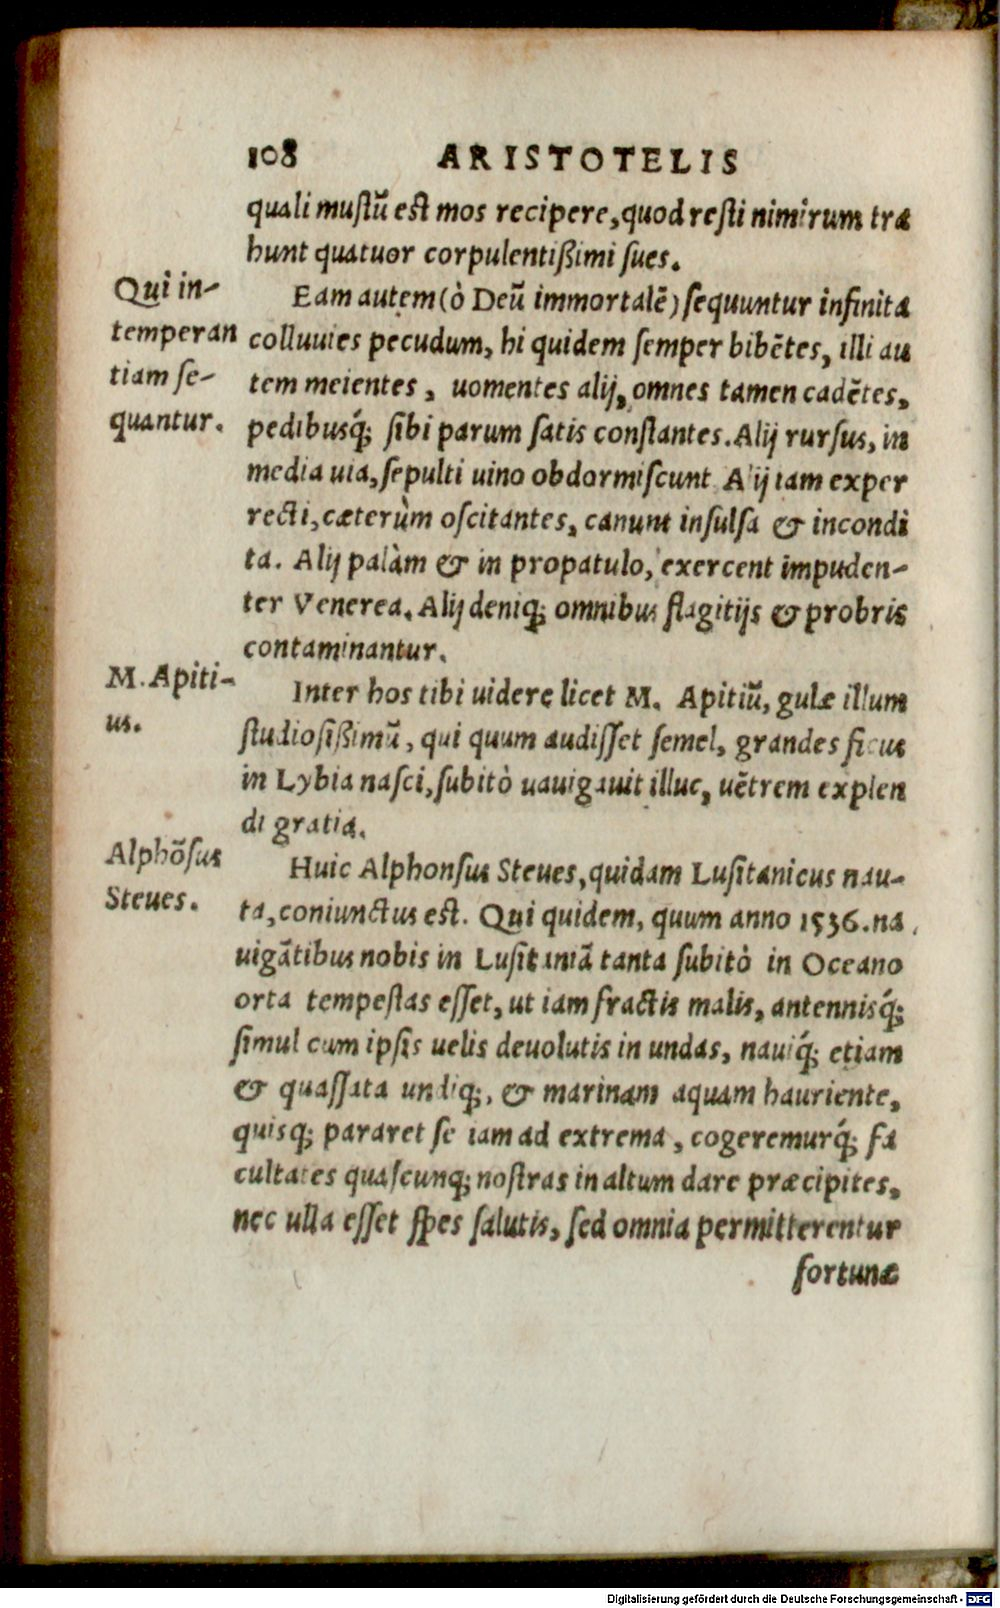 108 ARISTOTELIS
quali mustũ est mos recipere, quod resti nimirum tra
hunt quatuor corpulentißimi sues.
Qui in-
temperan
tiam se-
quantur.
Eam autem (ò Deũ immortalẽ) sequuntur infinita
colluuies pecudum, hi quidem semper bibẽtes, illi au
tem meientes, uomentes alij, omnes tamen cadẽtes,
pedibusq́; sibi parum satis constantes. Alij rursus, in
media uia, sepulti uino obdormiscunt Alij iam exper
recti, cæterùm oscitantes, canunt insulsa & incondi
ta. Alij palàm & in propatulo, exercent impuden-
ter Venerea. Alij deniq; omnibus flagitijs & probris
contaminantur.
M. Apiti-
us.
Inter hos tibi uidere licet M. Apitiũ, gulæ illum
studiosißimũ, qui quum audisset semel, grandes ficus
in Lybia nasci, subitò nauigauit illuc, uẽtrem explen
di gratia.
Alphõsus
Steues.
Huic Alphonsus Steues, quidam Lusitanicus nau-
ta, coniunctus est. Qui quidem, quum anno 1536. na
uigãtibus nobis in Lusitaniã tanta subitò in Oceano
orta tempestas esset, ut iam fractis malis, antennisq́;
simul cum ipsis uelis deuolutis in undas, nauiq́; etiam
& quassata undiq;, & marinam aquam hauriente,
quisq; pararet se iam ad extrema, cogeremurq́; fa
cultates quascunq; nostras in altum dare præcipites,
nec ulla esset spes salutis, sed omnia permitterentur
fortunæ
Digitalisierung gefördert durch die Deutsche Forschungsgemeinschaft - DFG